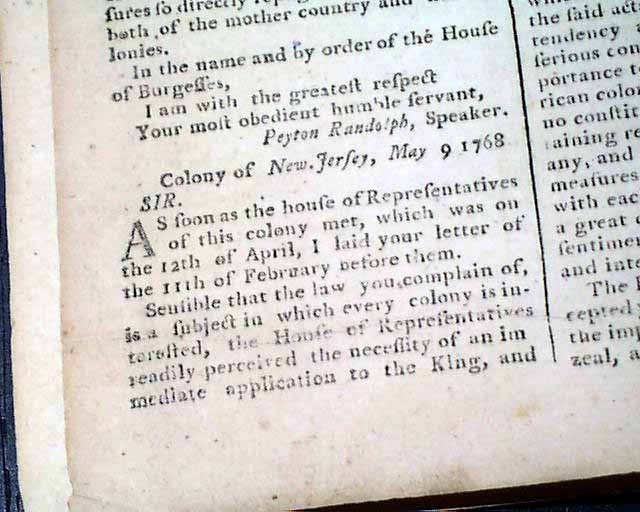 ſures ſo directly
both of the mother country and
lonies.
In the name and by order of the Houſe
of Burgeſſes,
I am with the greateſt reſpect
Your moſt obedient humble ſervant,
Peyton Randolph, Speaker.
Colony of New-Jerſey, May 9 1768
SIR.
AS ſoon as the houſe of Repreſentatives
of this colony met, which was on
the 12th of April, I laid your letter of
the 11th of February before them.
Senſible that the law you complain of,
is a ſubject in which every colony is in-
tereſted, the Houſe of Repreſentatives
readily perceived the neceſſity of an im
mediate application to the King, and
the ſaid act
tendency
ſerious con
portance t
rican color
no conſtit
taining re
any, and
meaſures
with each
a great
ſentime
and inte
The
cepted
the imp
zeal, a